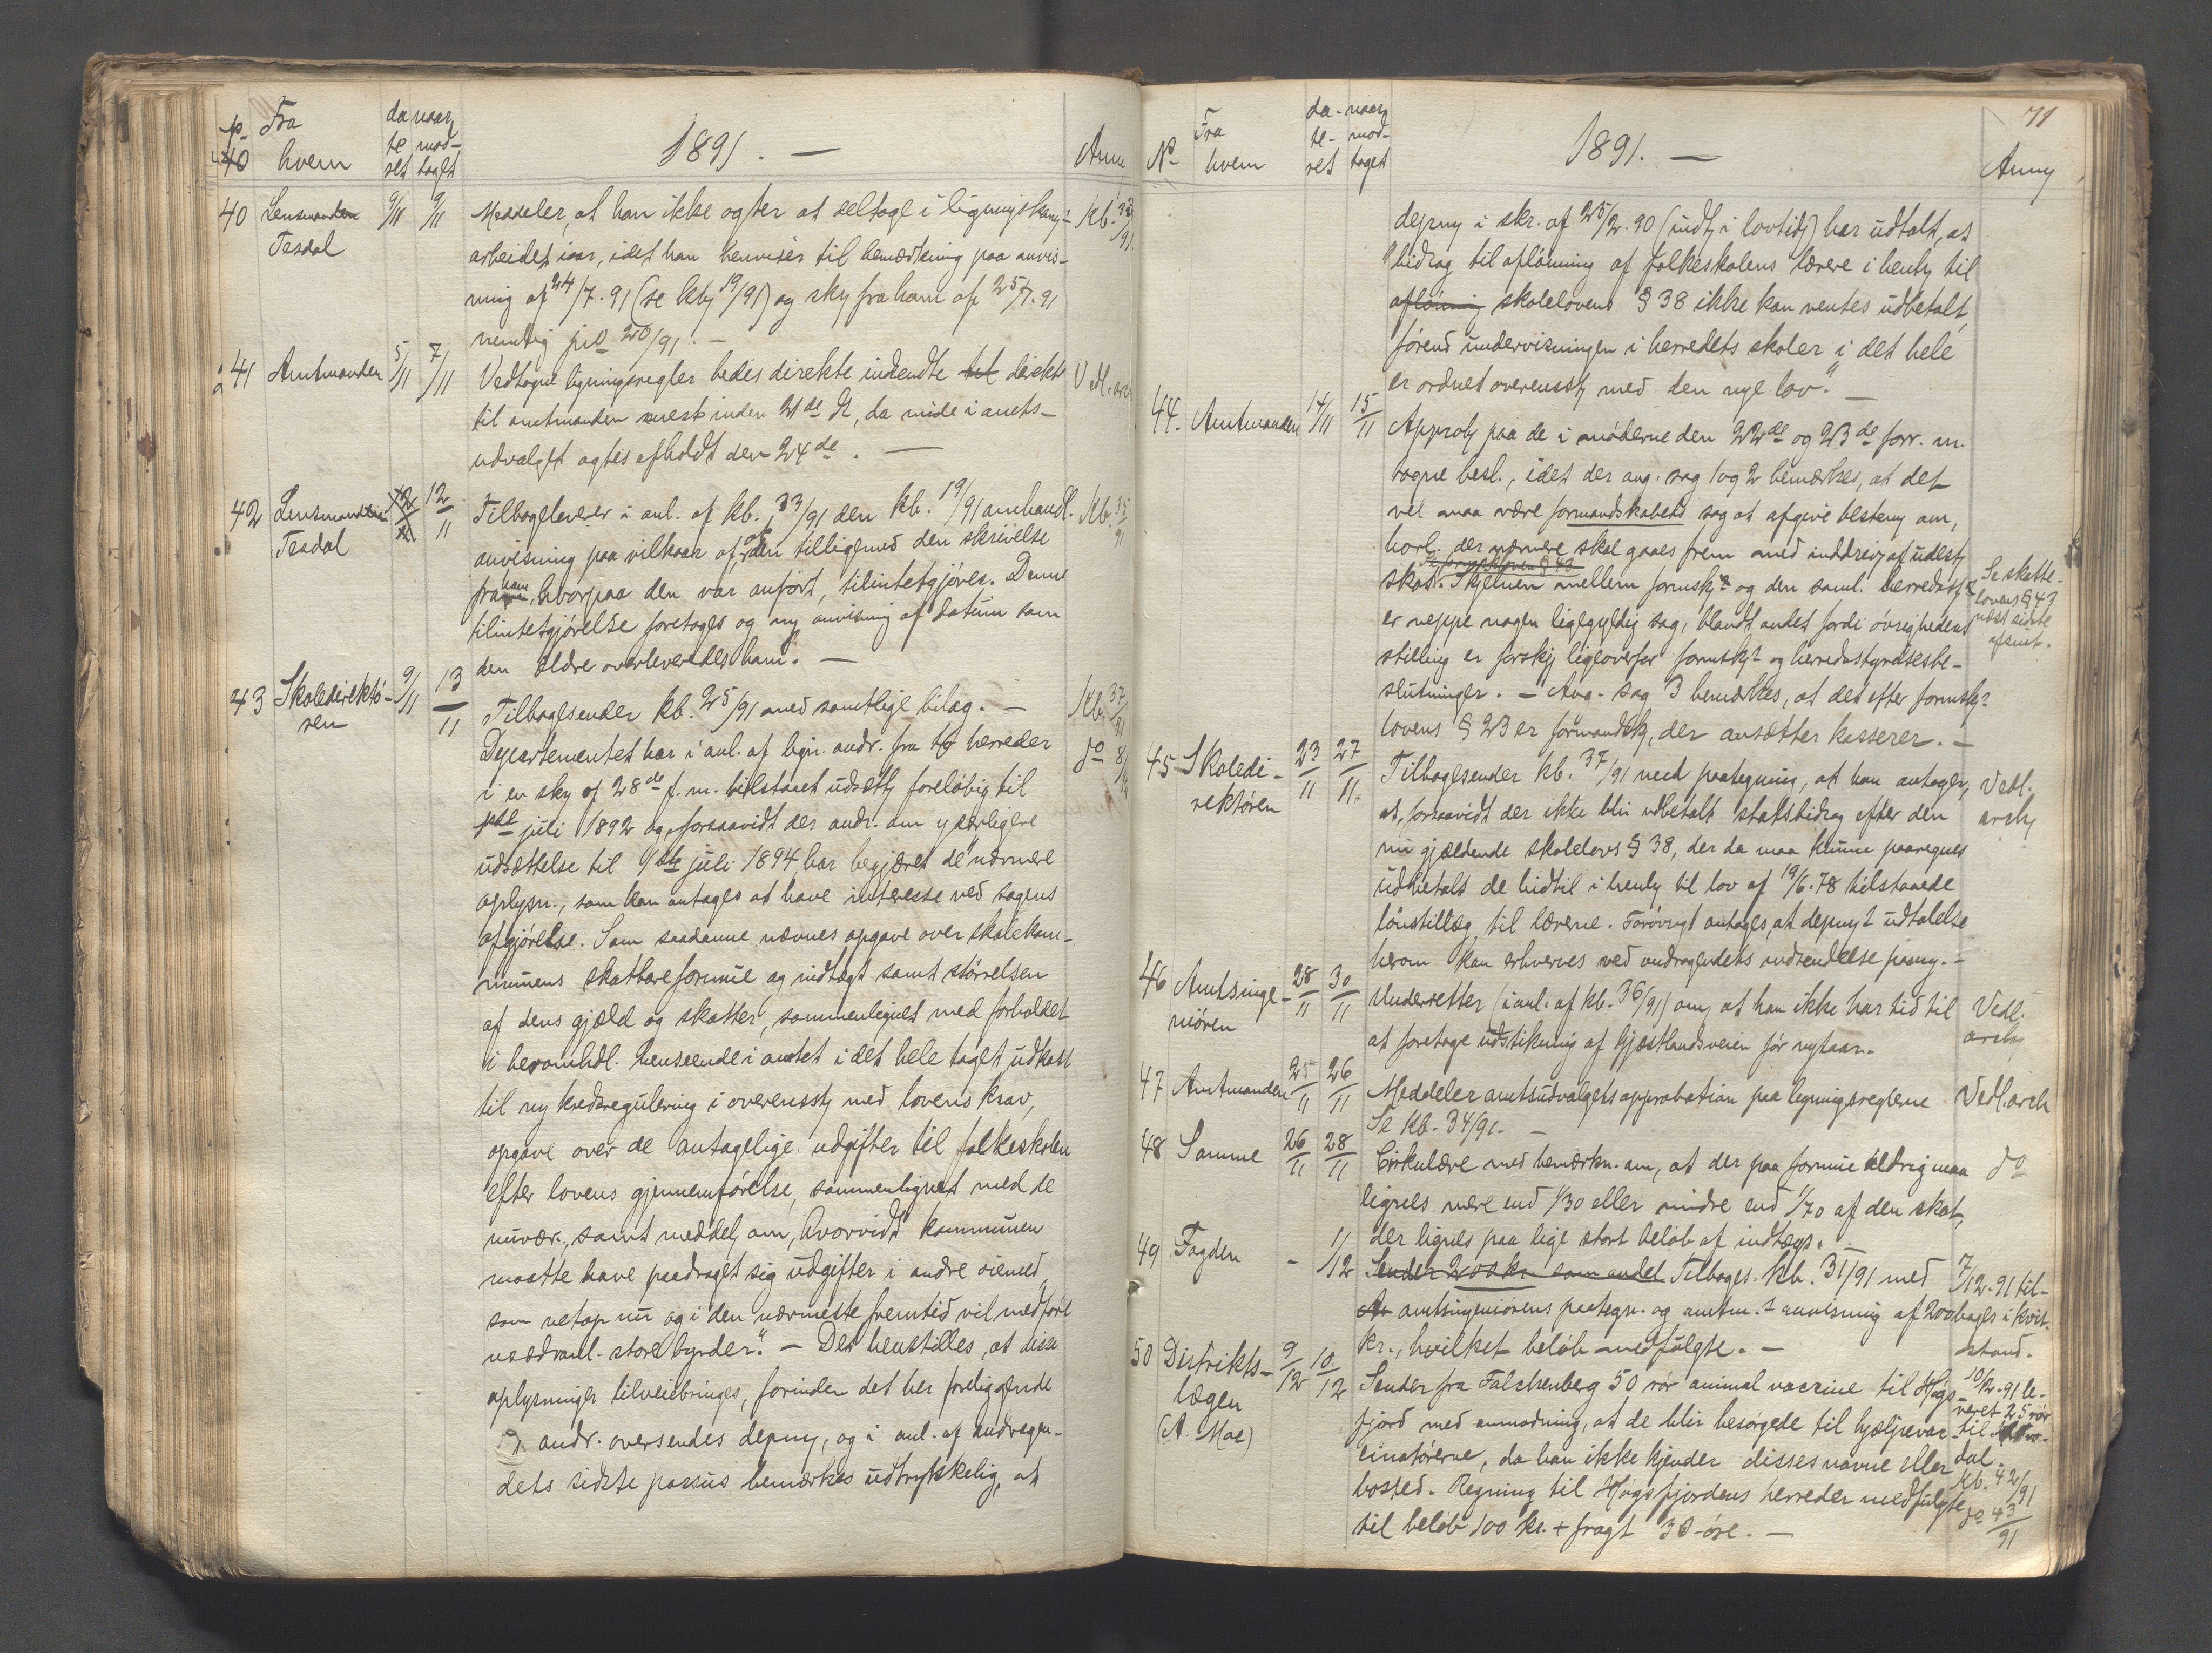 Fra hvem
dateret
naar modtaget
1891. —
Anm
40 Lensmanden Tesdal 9/11 9/11
Meddeler, at han ikke agter at deltage i ligningskom.s
arbeidet iaar, idet han henviser til bemærkning paa anvis-
ning af 24/7.91 (se kb. 19/91) og skr. fra ham af 25/7.91
nemlig 20/91. —
41 Amtmanden 5/11 7/11
Vedtagne ligningsregler bedes direkte indsendte til direkte
til amtmanden inden 21de , da møde i amts-
udvalget agtes afholdt den 24de. —
42 Lensmanden Tesdal 12/11 12/11
Tilbageleverer i anl. af kb. 33/91 den kb. 19/91 omhandl. Kb. 35/91
anvisning paa vilkaar af, at den tilligemed den skrivelse
fra ham, hvorpaa den var anført, tilintetgjøres. Denne
tilintetgjørelse foretages og ny anvisning af datum som
den ældre overleveredes ham. —
43 Skoledirektøren 9/11 13/11
Tilbagesender kb. 25/91 med samtlige bilag. — Kb. 37/91
Departementet har i anl. af lign. andr. fra to herreder do
i en skr. af 28de f. m. tilstaaet udsætt. foreløbig til
1ste juli 1892 og, forsaavidt der andr. om yderligere
udsættelse til 1ste juli 1894, har begjæret de "nærmere
oplysn., som kan antages at have interesse ved sagens
afgjørelse. Som saadanne nævnes opgave over skolekom-
munens skatbare formue og indtægt samt størrelsen
af dens gjæld og skatter, sammenlignet med forholdet
i heromhdl. henseende i amtet i det hele taget, udkast
til ny kredsregulering i overensst. med lovens krav,
opgave over de antagelige udgifter til folkeskolen
efter lovens gjennemførelse, sammenlignet med de
nuvær., samt meddel. om, hvorvidt kommunen
maatte have paadraget sig udgifter i andre øiemed,
som netop nu og i den nærmeste fremtid vil medføre
usædvanl. store byrder." — Det henstilles, at disse
oplysninger tilveiebringes, forinden det her foreliggende
andr. oversendes depmt., og i anl. af andragen-
dets sidste passus bemærkes udtrykkelig, at
71
No Fra hvem
dateret
naar modtaget
1891. —
Anm
depmt i skr. af 25/2.90 (indt. i lovtid.) har udtalt, at
"bidrag til aflønning af folkeskolens lærere i henh. til
aflønning skolelovens § 38 ikke kan ventes udbetalt,
førend undervisningen i herredets skoler i det hele
er ordnet overensst. med den nye lov." —
44. Amtmanden 14/11 15/11
Approb. paa de i møderne den 22de og 23de forr. m.
tagne besl., idet der ang. sag 1 og 2 bemærkes, at det
vel maa være formandskabets sag at afgive bestem. om,
hvorl. der nærmere skal gaaes frem med inddrivn. af udest.
skat. Skjelnen mellem formsk.s og den saml. herredsst.
er neppe nogen ligegyldig sag, blandt andet fordi øvrighedens
stilling er forskj. ligeoverfor formsk.s og herredsstyrelsesbe-
slutninger. — Ang. sag 3 bemærkes, at det efter formsk.s
lovens § 23 er formandsk., der ansætter kasserer. —
Se skatte-
lovens § 43
næst sidste
afsnit.
45 Skoledirektøren 23/11 27/11.
Tilbagesender kb. 37/91 med paategning, at han antager, Vedl.
at, forsaavidt der ikke blir udbetalt statsbidrag efter den arch
nu gjældende skolelovs § 38, der da maa kunne paaregnes
udbetalt de hidtil i henh. til lov af 19/6.78 tilstaaede
lønstillæg til lærerne. Forøvrigt antages, at depmts udtalelse
herom kan erhverves ved andragendets indsendelse .. —
46 Amtsingeniøren 28/11 30/11
Underretter (i anl. af kb. 36/91) om, at han ikke har tid til Vedl.
at foretage udstikning af Gjæstlandsveien før nytaar. arch
47 Amtmanden 25/11 26/11
Meddeler amtsudvalgets approbation paa ligningsreglerne Vedl. arch
Se Kb. 34/91. —
48 Samme 26/11 28/11
Cirkulære med bemærkn. om, at der paa formue aldrig maa do
lignes mere end 1/30 eller mindre end 1/70 af den skat,
der lignes paa lige stort beløb af indtægt.
49 Fogden - 1/12
Sender 200 kr. som andel Tilbages. Kb. 31/91 med 7/12.91 til-
amtsingeniørens paategn. og amtm.s anvisning af 200 bages. i kvit.
kr., hvilket beløb medfulgte. — stand.
50 Distriktslægen (A. Moe) 9/12 10/12
Sender fra Falchenberg 50 rør animal vaccine til Høgs- 10/12.91 le-
fjord med anmodning, at de blir besørgede til hjælpevac- veret 25 rør
cinatørerne, da han ikke kjender disses navne eller
bosted. Regning til Høgsfjordens herreder medfulgte Kb. 42/91
til beløb 100 kr. + fragt 30 øre. — do 43/91